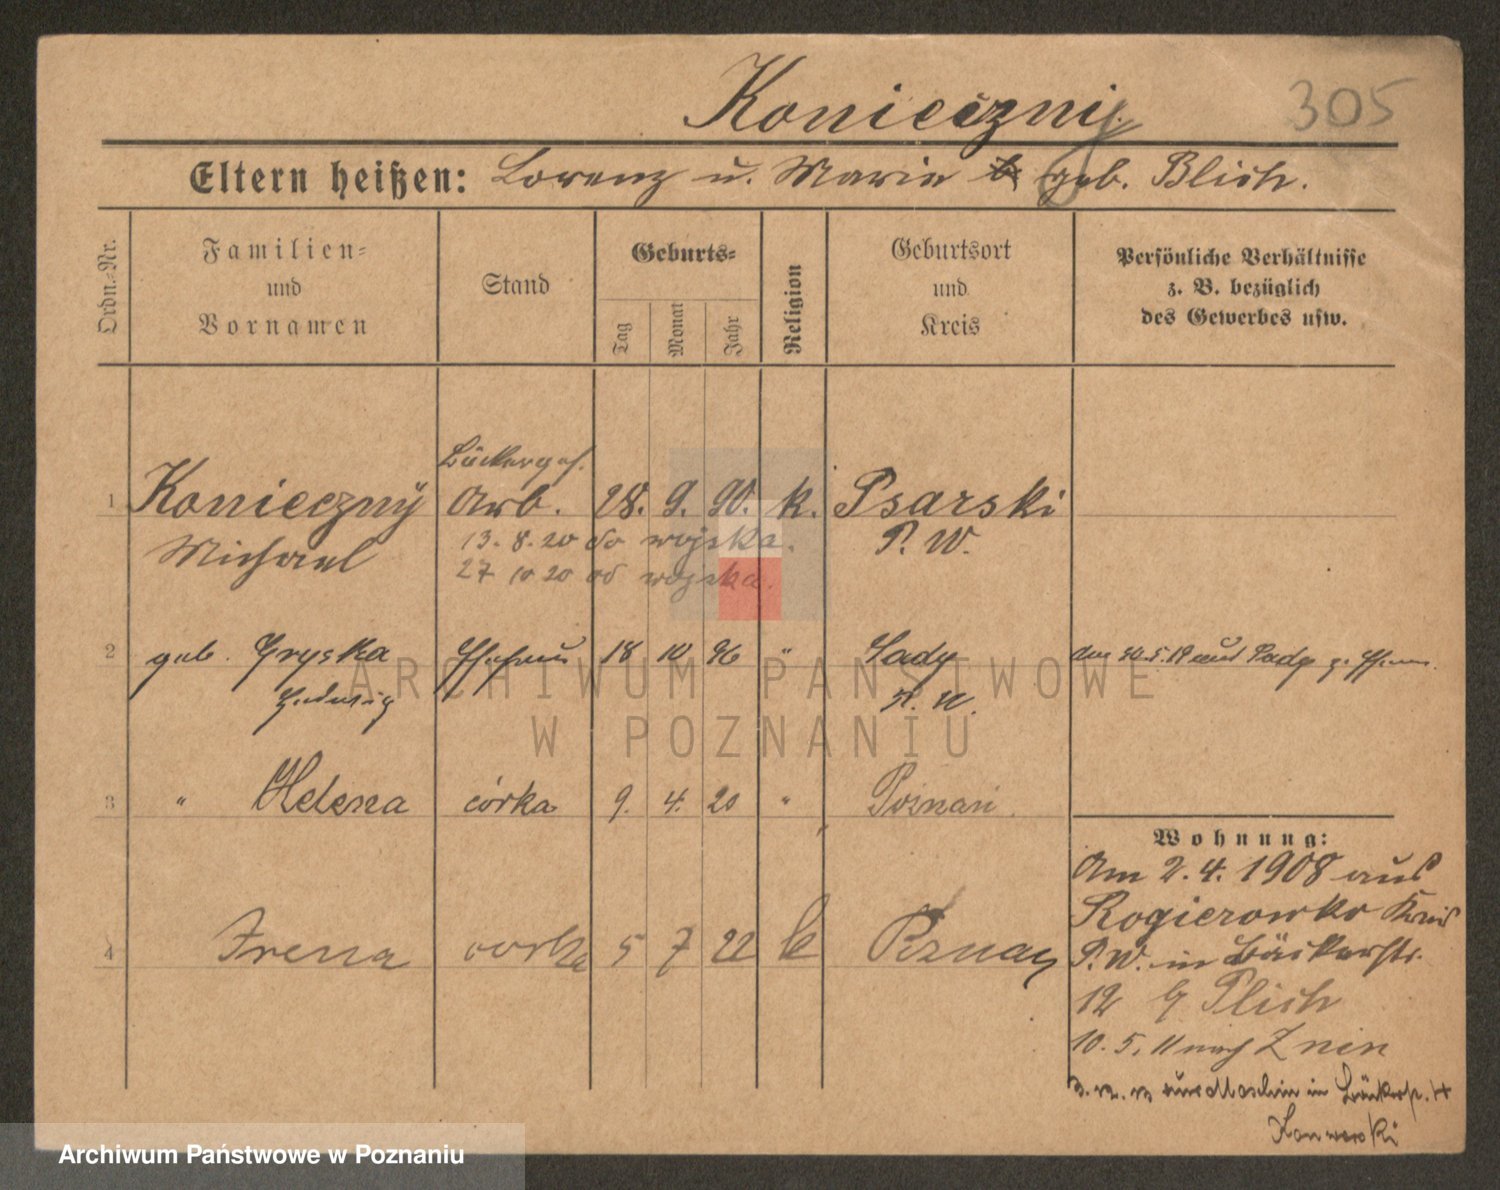 Konieczny
305
Eltern heißen: Lorenz u. Marie geb. Blich.
Ordn.-Nr.
Familien- und Vornamen
Stand
Geburts-
Tag
Monat
Jahr
Religion
Geburtsort und Kreis
Persönliche Verhältnisse z. B. bezüglich des Gewerbes usw.
Bäckerges.
1 Konieczny Arb. 28. 9. 90. k. Psarski
Michael 13. 8. 20 do wojska. P. W.
27 10 20 od wojska.
2 geb. Gryska Ehefrau 18 10 96 " Sady
Hedwig P. W.
ARCHIWUM PAŃSTWOWE
W POZNANIU
3 " Helena córka 9. 4. 20 " Poznań.
4 Irena corka 5 7 22 k
Wohnung:
Am 2. 4. 1908 aus
Rogierowko Kreis
P. W. in Bäckerstr.
12 b/ Plich
10. 5. 11 nach Znin
in
Archiwum Państwowe w Poznaniu